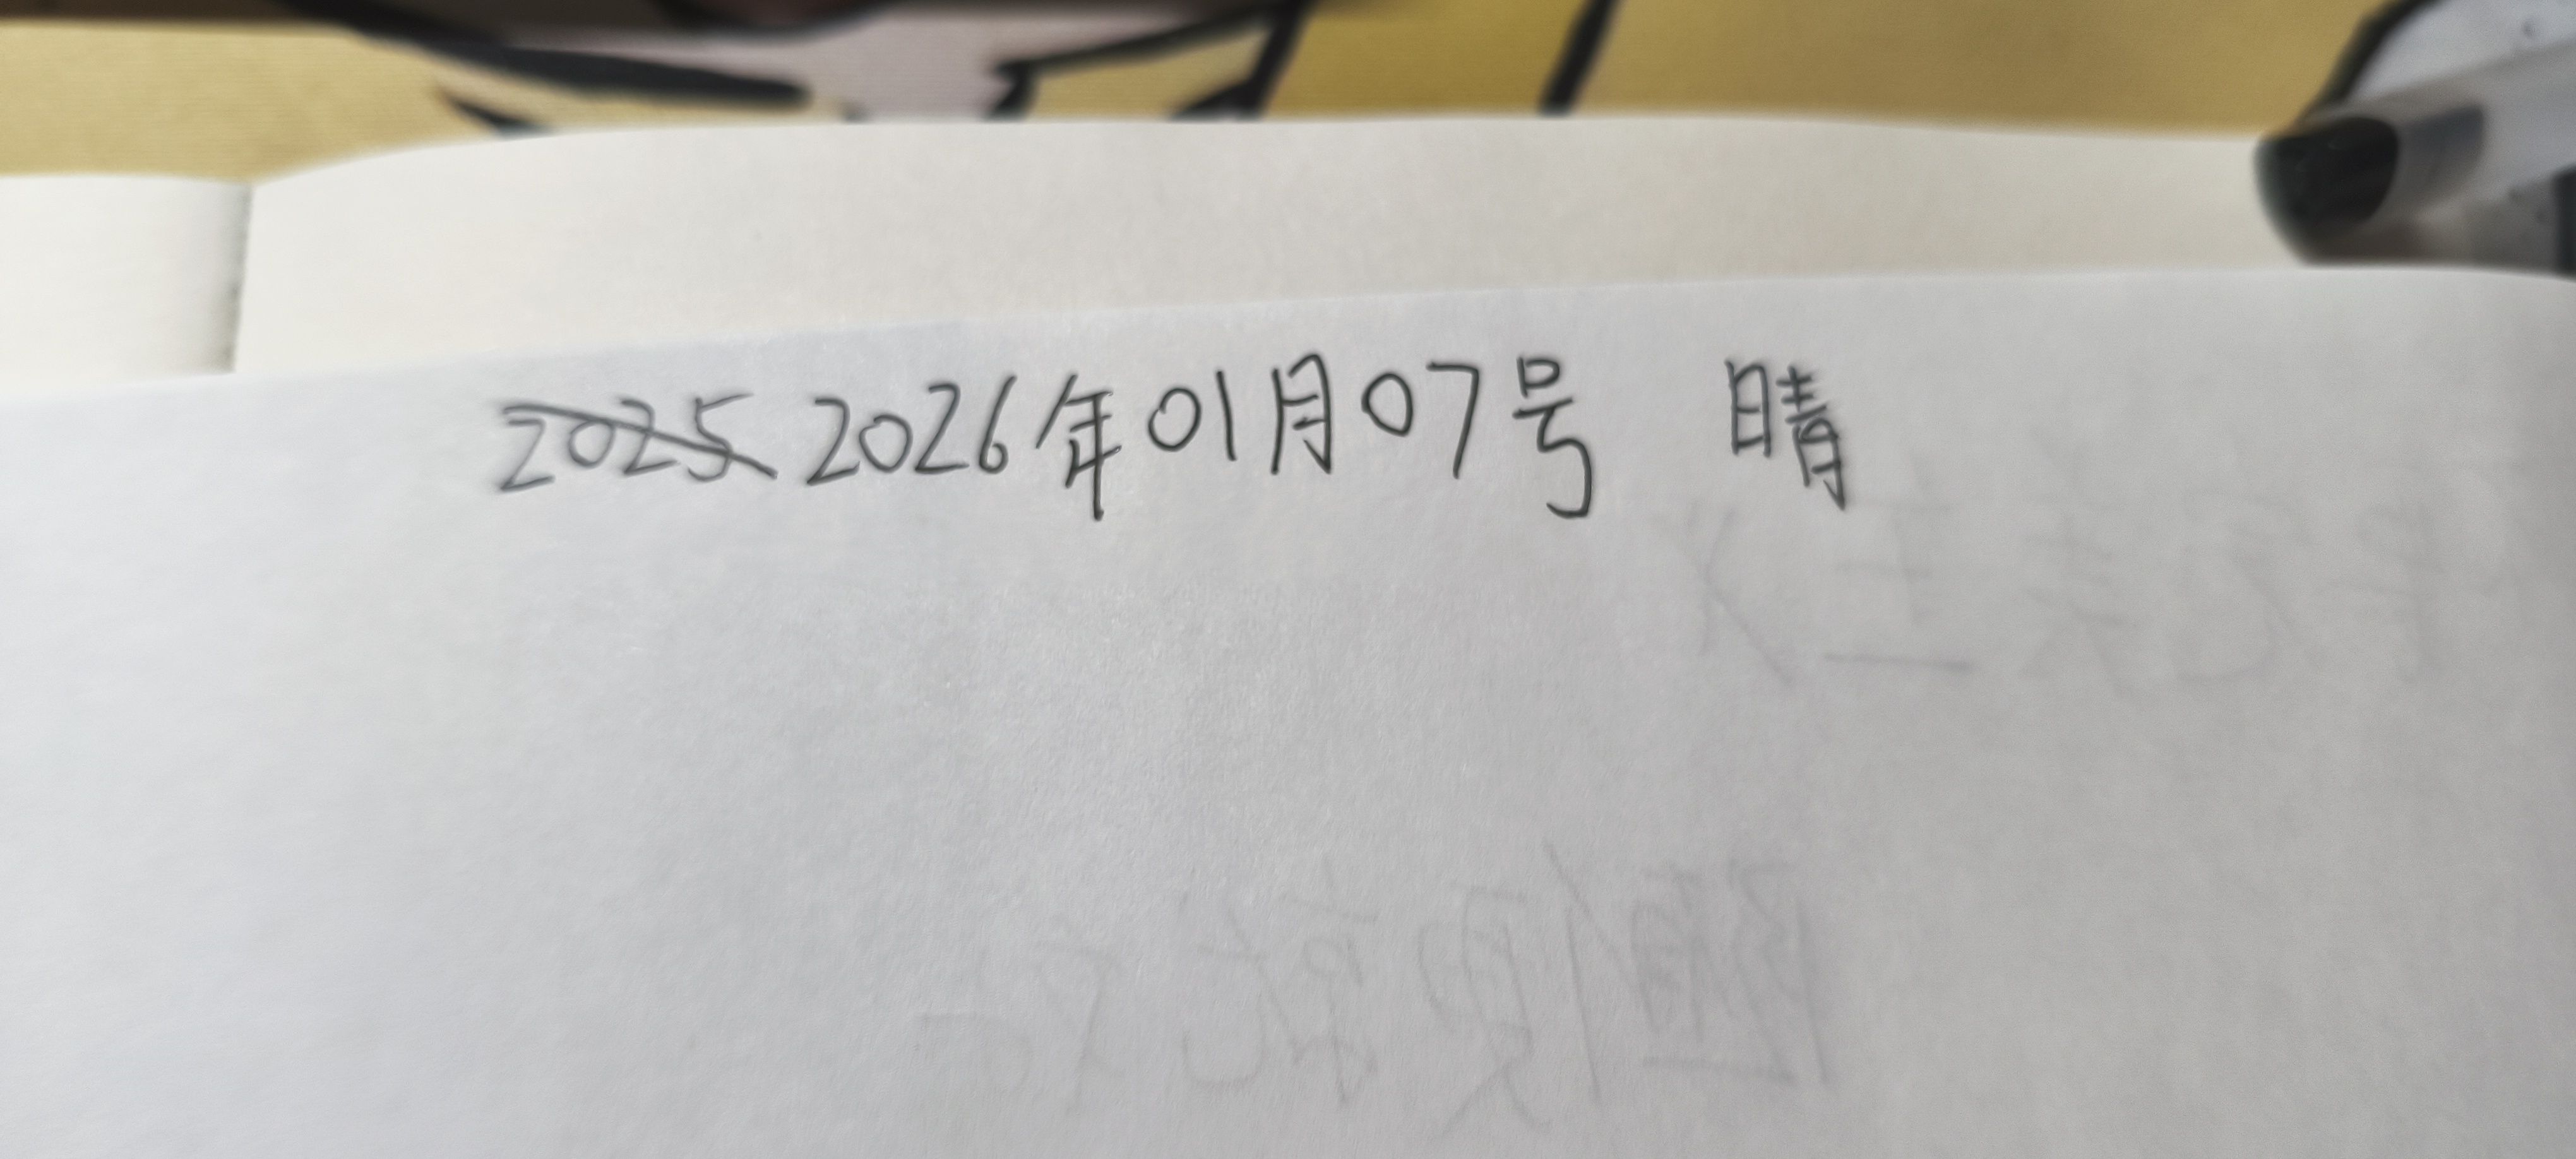 2025 2026年01月07号 晴